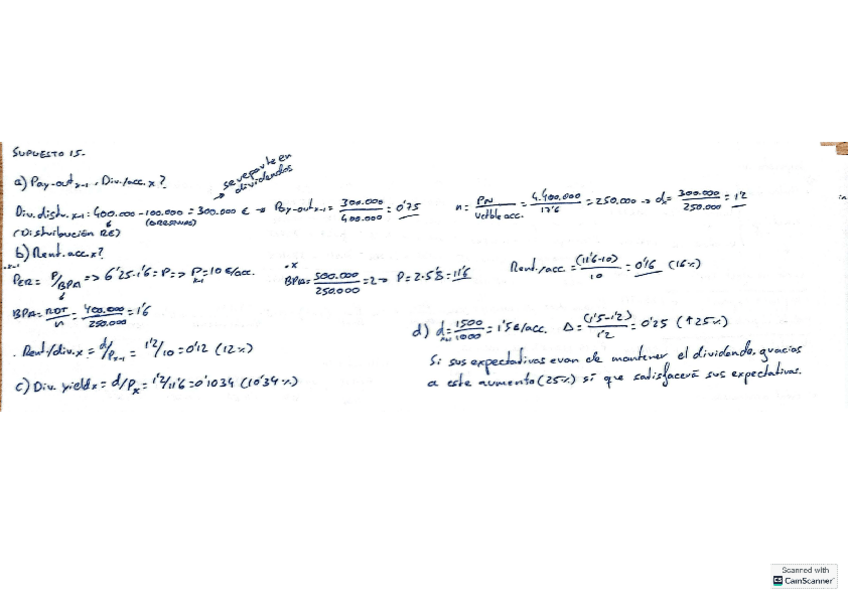 SUPUESTO 15.
se reparte en
dividendos
a) Pay-out x-1, Div./acc. x?
Div. distr. x-1: 400.000 - 100.000 = 300.000 € → Pay-out x-1 = 300.000/400.000 = 0'75
n = PN/Vctble acc. = 4.400.000/17'6 = 250.000 → dx = 300.000/250.000 = 1'2
(Distribución RE)
b) Rent. acc. x?
.x-1
PER = P/BPA => 6'25·1'6 = P => P x-1 = 10 €/acc.
.x
BPA = 500.000/250.000 = 2 → P = 2·5'8 = 11'6
Rent./acc = (11'6-10)/10 = 0'16 (16%)
BPA = RDT/n = 400.000/250.000 = 1'6
. Rent/div. x = d/P x-1 = 1'2/10 = 0'12 (12%)
c) Div. yield x = d/Px = 1'2/11'6 = 0'1034 (10'34%)
d) d = 1500/1000 = 1'5 €/acc. Δ = (1'5-1'2)/1'2 = 0'25 (↑25%)
Si sus expectativas eran de mantener el dividendo, gracias
a este aumento (25%) sí que satisfacerá sus expectativas.
Scanned with
CS CamScanner